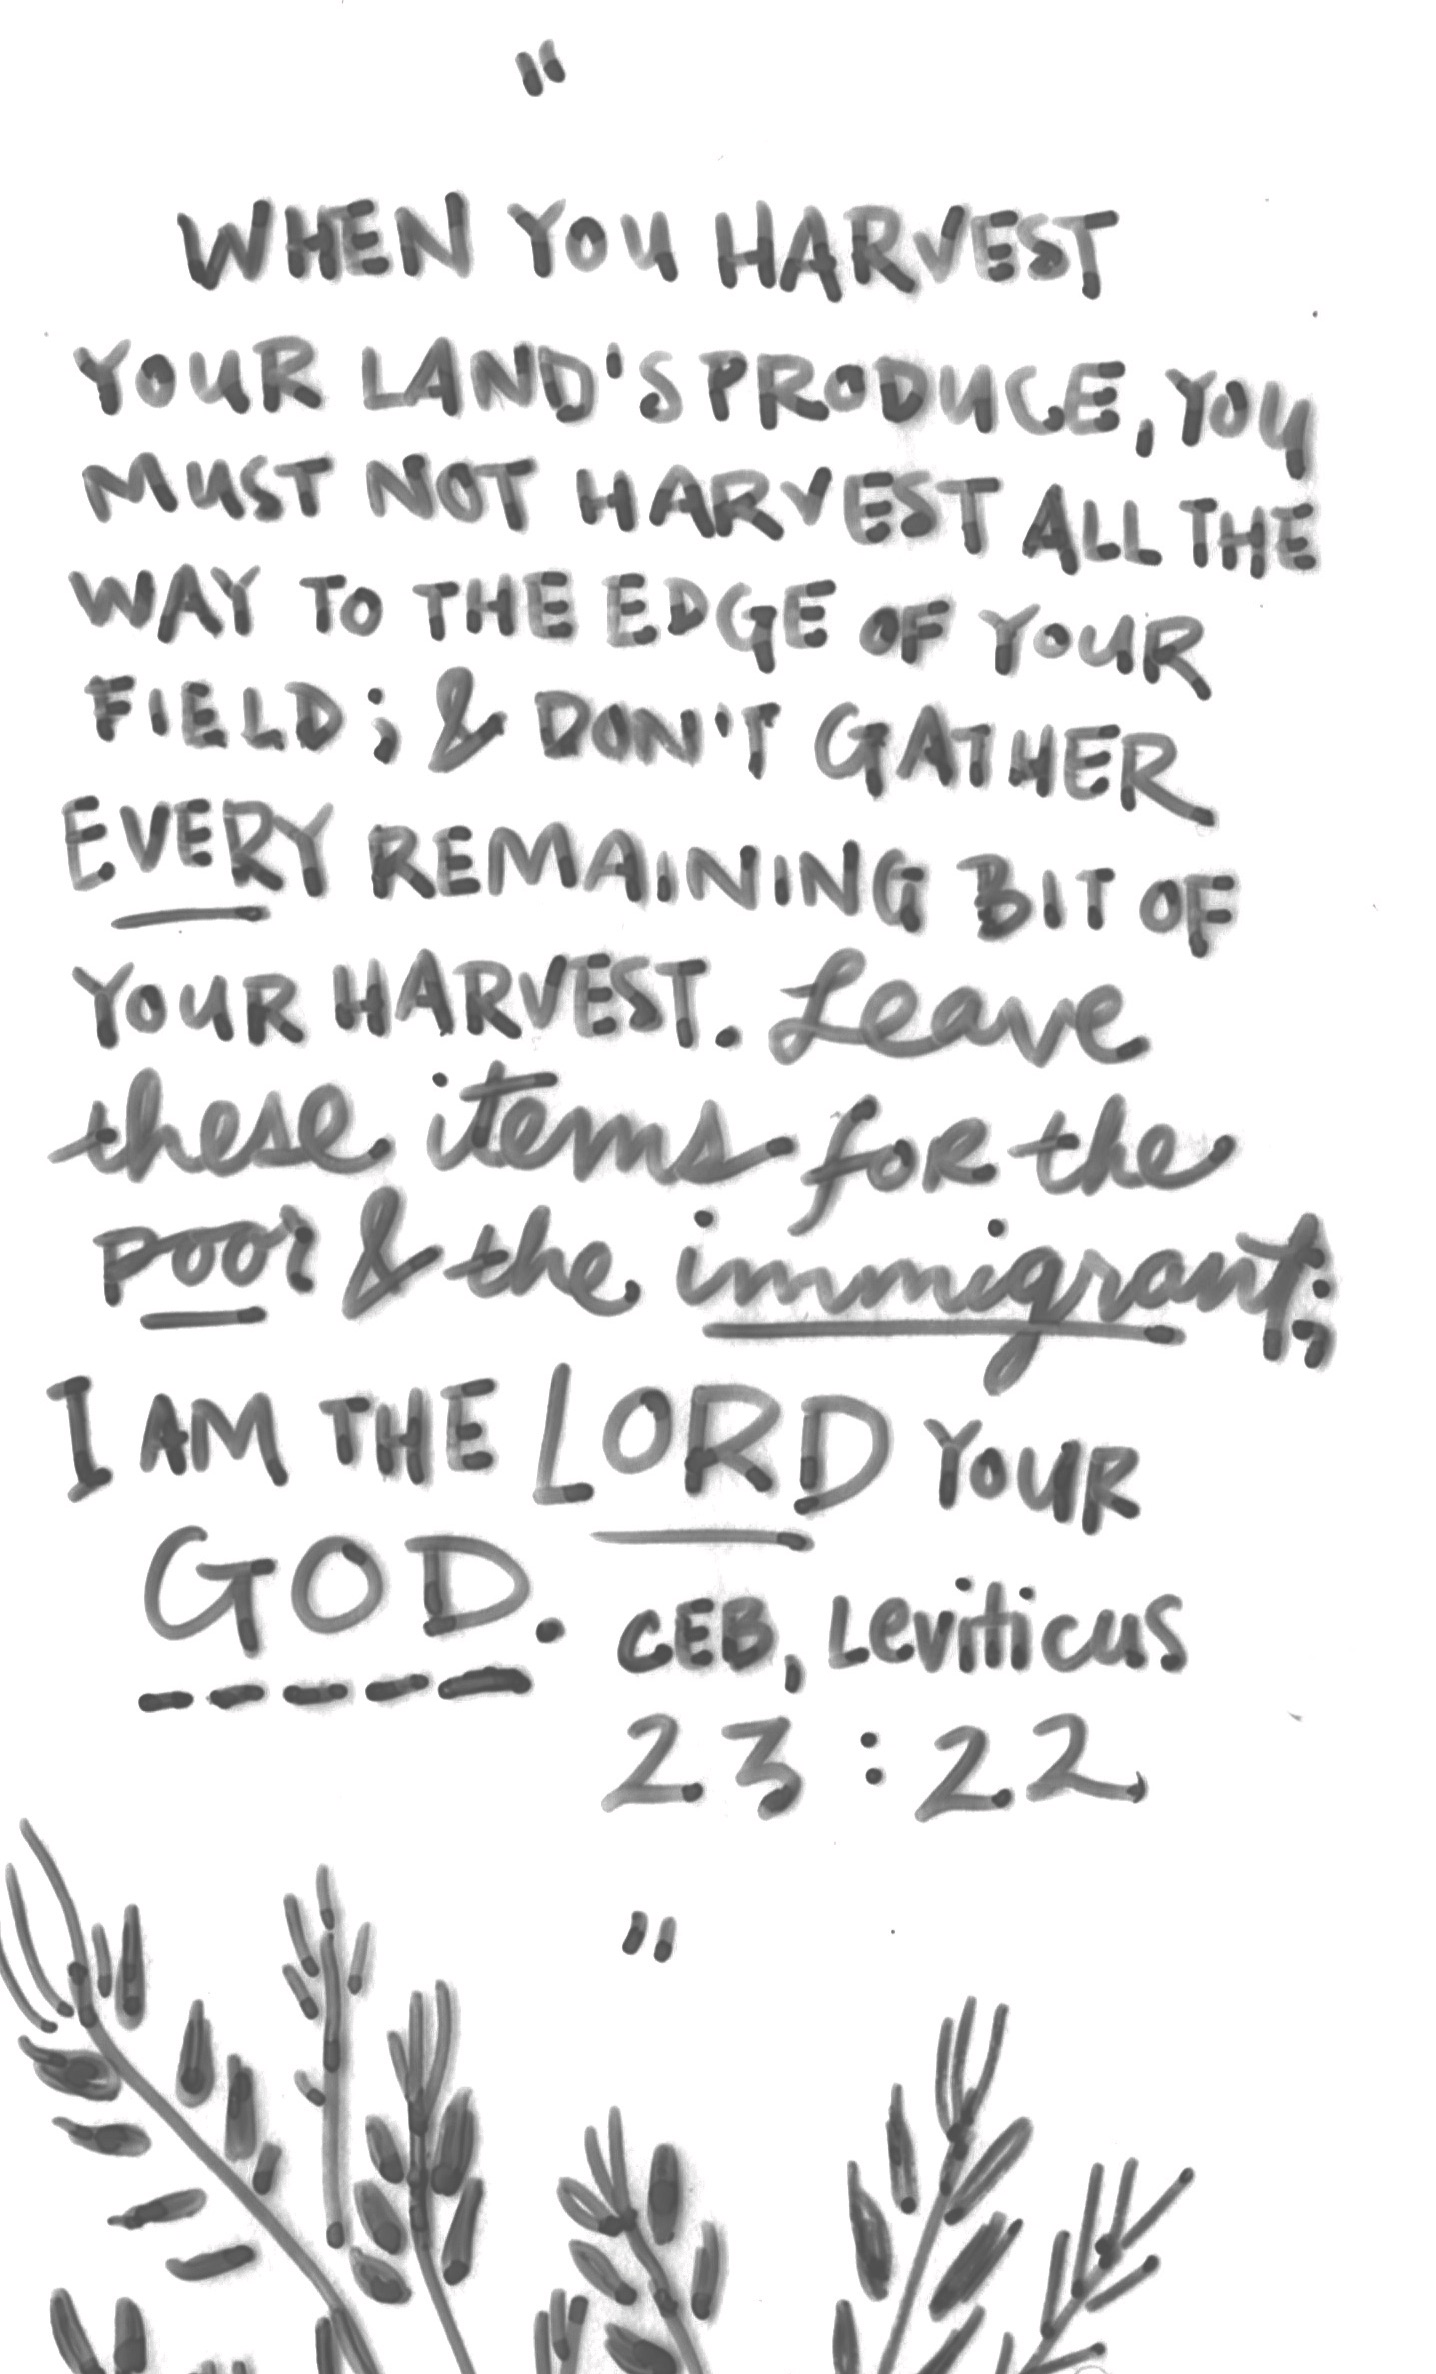 "
WHEN YOU HARVEST
YOUR LAND'S PRODUCE, YOU
MUST NOT HARVEST ALL THE
WAY TO THE EDGE OF YOUR
FIELD; & DON'T GATHER
EVERY REMAINING BIT OF
YOUR HARVEST. Leave
these items for the
poor & the immigrant;
I AM THE LORD YOUR
GOD. CEB, Leviticus
23:22
"